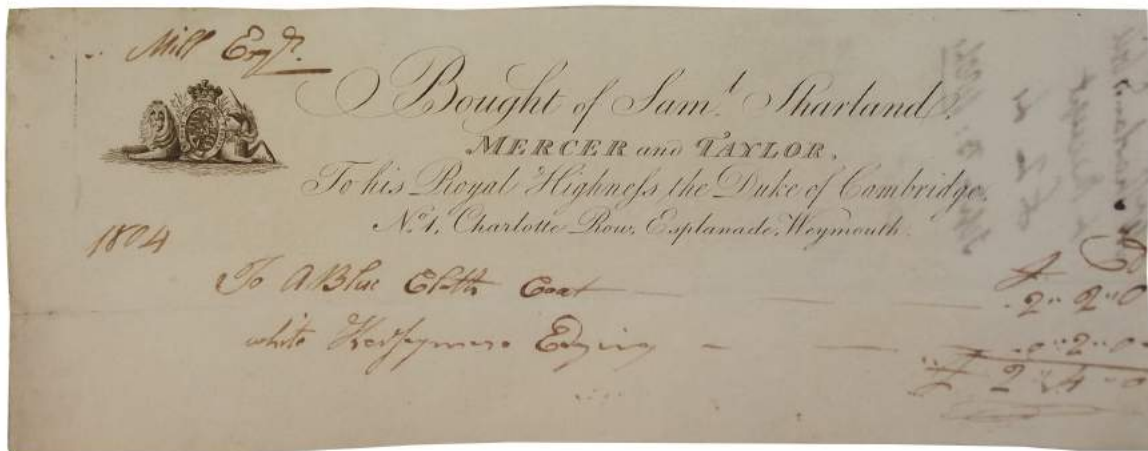 Mill Esqr.
Bought of Sam.t Sharland.
MERCER and TAYLOR,
To his Royal Highneſs, the Duke of Cambridge,
No. 1, Charlotte Row, Esplanade, Weymouth.
1804
To A Blue Cloth Coat — — — 2 " 2 " 0
white Kerseymere Edging — — — 0 " 2 " 0
£ 2 " 4 " 0